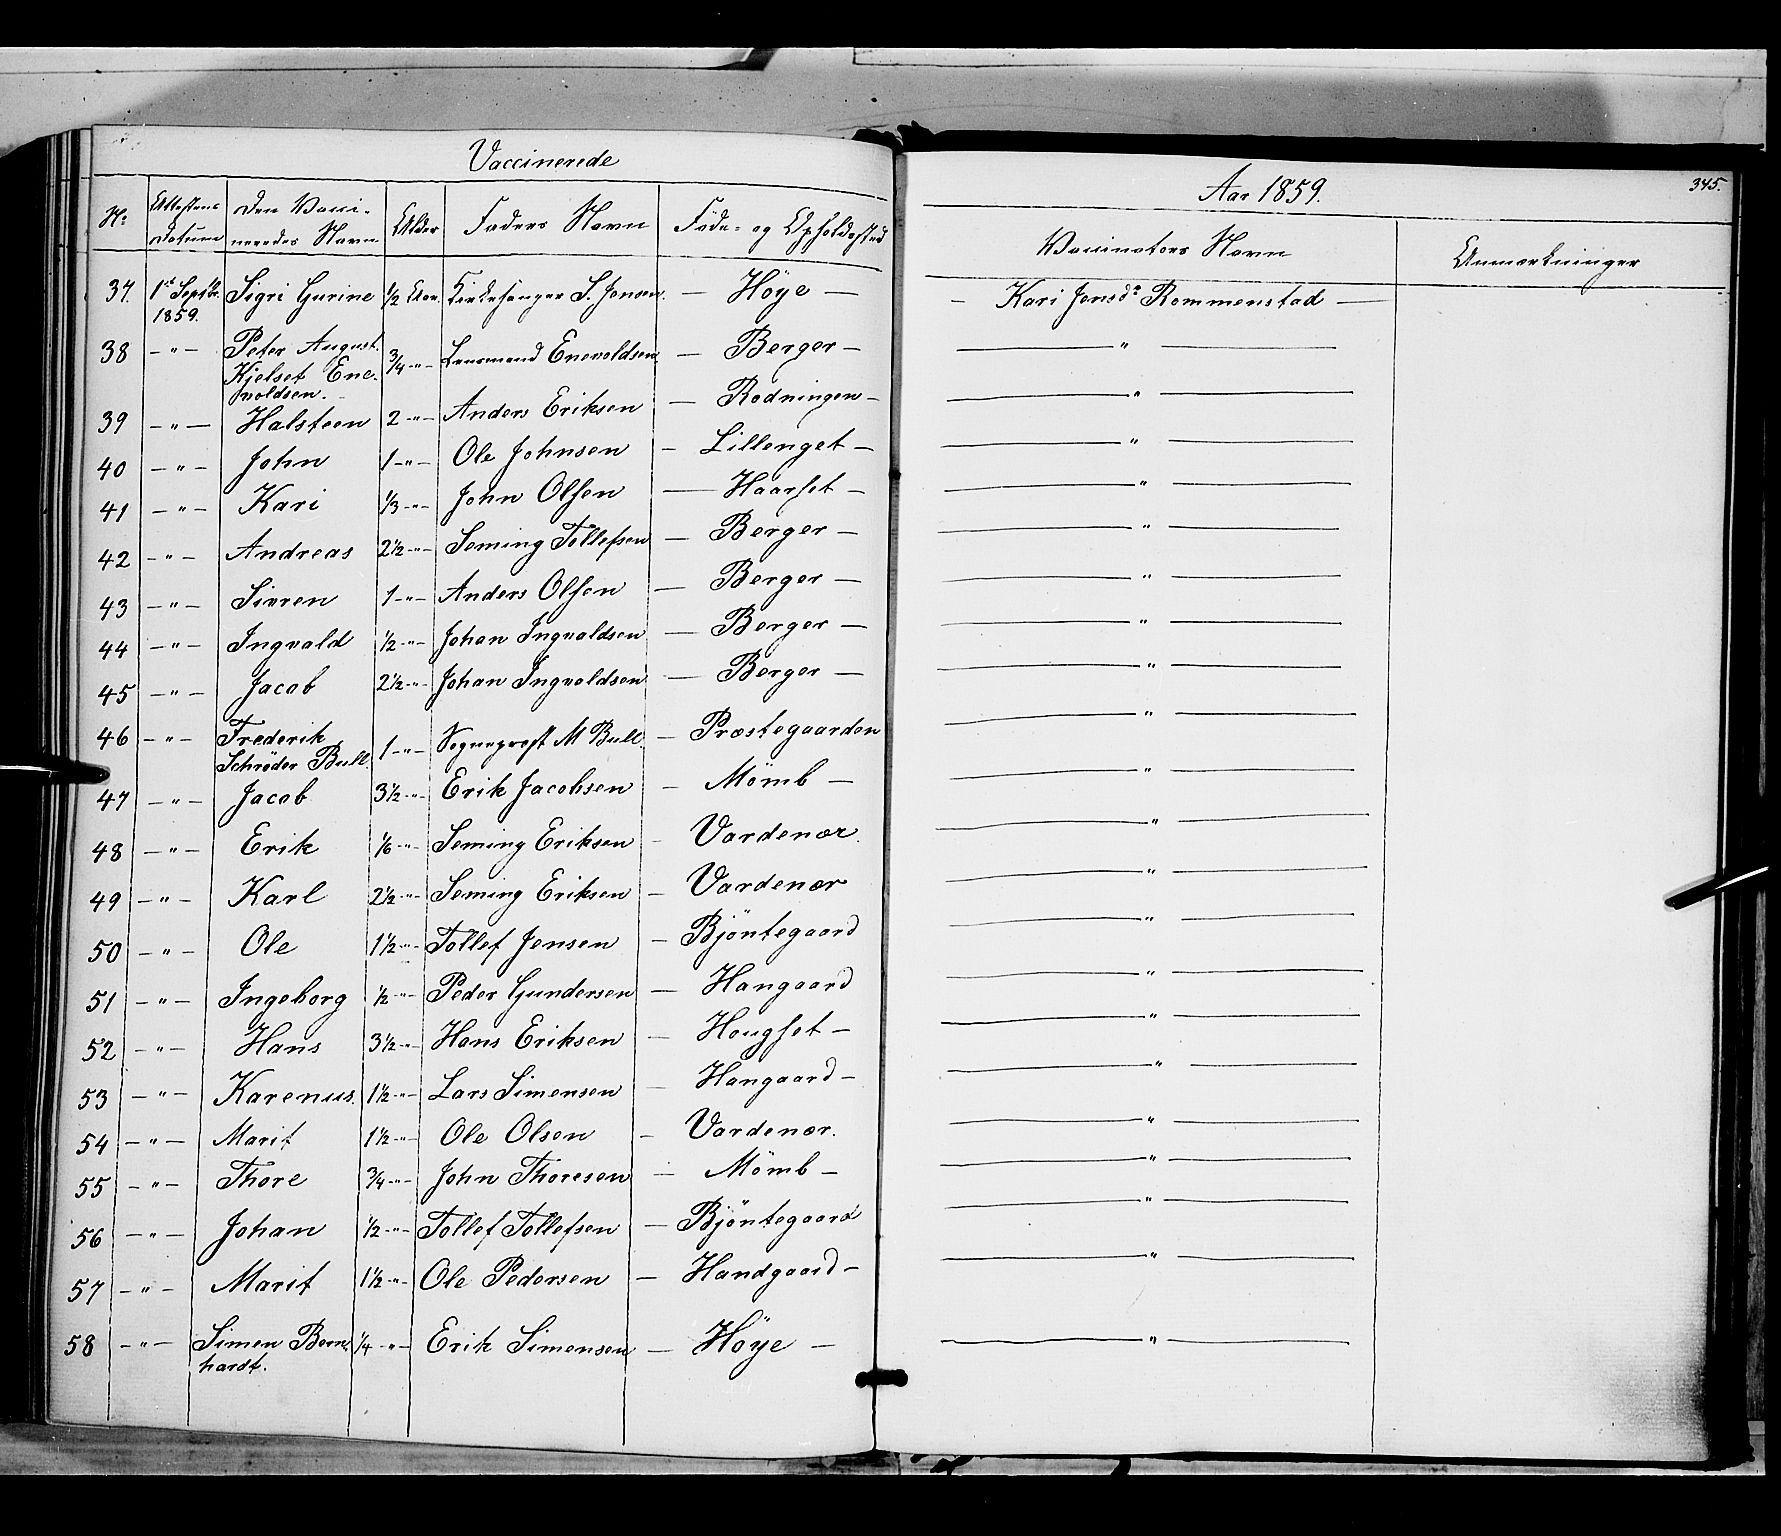 Vaccinerede
Aar 1859.
345.
No Attestens Datum Den Vacci- neredes Navn Alder Faders Navn Føde- og Opholdssted Vaccinators Navn Anmærkninger
37. 1ste Septbr. 1859. Sigri Gurine 1/2 Aar. Kirkesanger S. Jensen. — Höye — — Kari Jensdr Rommenstad —
38 — " — Peter August Kjelset Ene- voldsen. 3/4 - " - Lensmand Enevoldsen — Berger — — " —
39 — " — Halsteen 2 - " - Anders Eriksen — Rodningen — — " —
40 — " — John 1 - " - Ole Johnsen — Lillenget — — " —
41 — " — Kari 1/3 - " - John Olsen — Haarset — — " —
42 — " — Andreas 2 1/2 - " - Seming Tollefsen — Berger — — " —
43 — " — Sivren 1 - " - Anders Olsen — Berger — — " —
44 — " — Ingvald 1/2 - " - Johan Ingvaldsen — Berger — — " —
45 — " — Jacob 2 1/2 - " - Johan Ingvaldsen — Berger — — " —
46 — " — Frederik Schröder Bull. 1 - " - Sogneprest M Bull — Præstegaarden — " —
47 — " — Jacob 3 1/2 - " - Erik Jacobsen — Mömb — — " —
48 — " — Erik 1/6 - " - Seming Eriksen — Vardenær. — " —
49 — " — Karl 2 1/2 - " - Seming Eriksen — Vardenær — " —
50 — " — Ole 1 1/2 - " - Tollef Jensen — Bjöntegaard — " —
51 — " — Ingeborg 1/2 - " - Peder Gundersen — Hangaard — " —
52 — " — Hans 3 1/2 - " - Hans Eriksen — Hougset — — " —
53 — " — Karenus. 1 1/2 - " - Lars Simensen — Hangaard — — " —
54 — " — Marit 1 1/2 - " - Ole Olsen — Vardenær. — " —
55 — " — Thore 3/4 - " - John Thoresen — Mömb — — " —
56 — " — Johan 1/2 - " - Tollef Tollefsen — Bjöntegaard — " —
57 — " — Marit 1 1/2 - " - Ole Pedersen — Handgaard — — " —
58 — " — Simen Bern- hardt. 1/4 - " - Erik Simensen — Höye — — " —